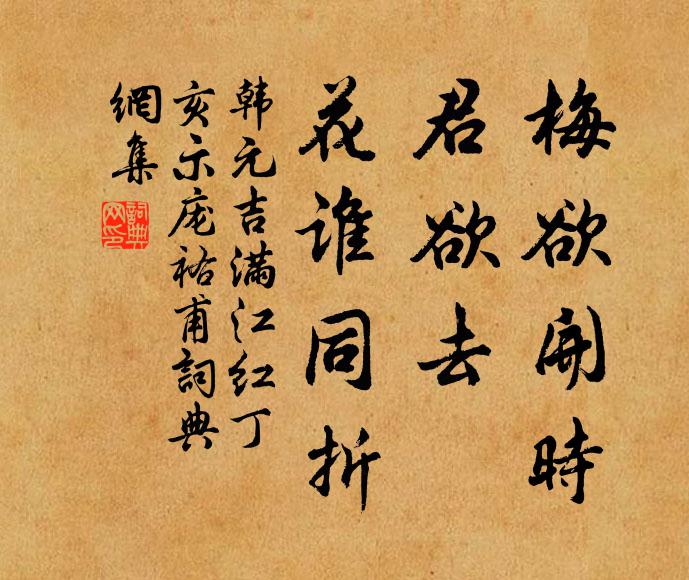 梅欲開時
君欲去
花谁同折
韩元吉满江红丁
亥示庞祐甫詞典
網集
詞典
网印